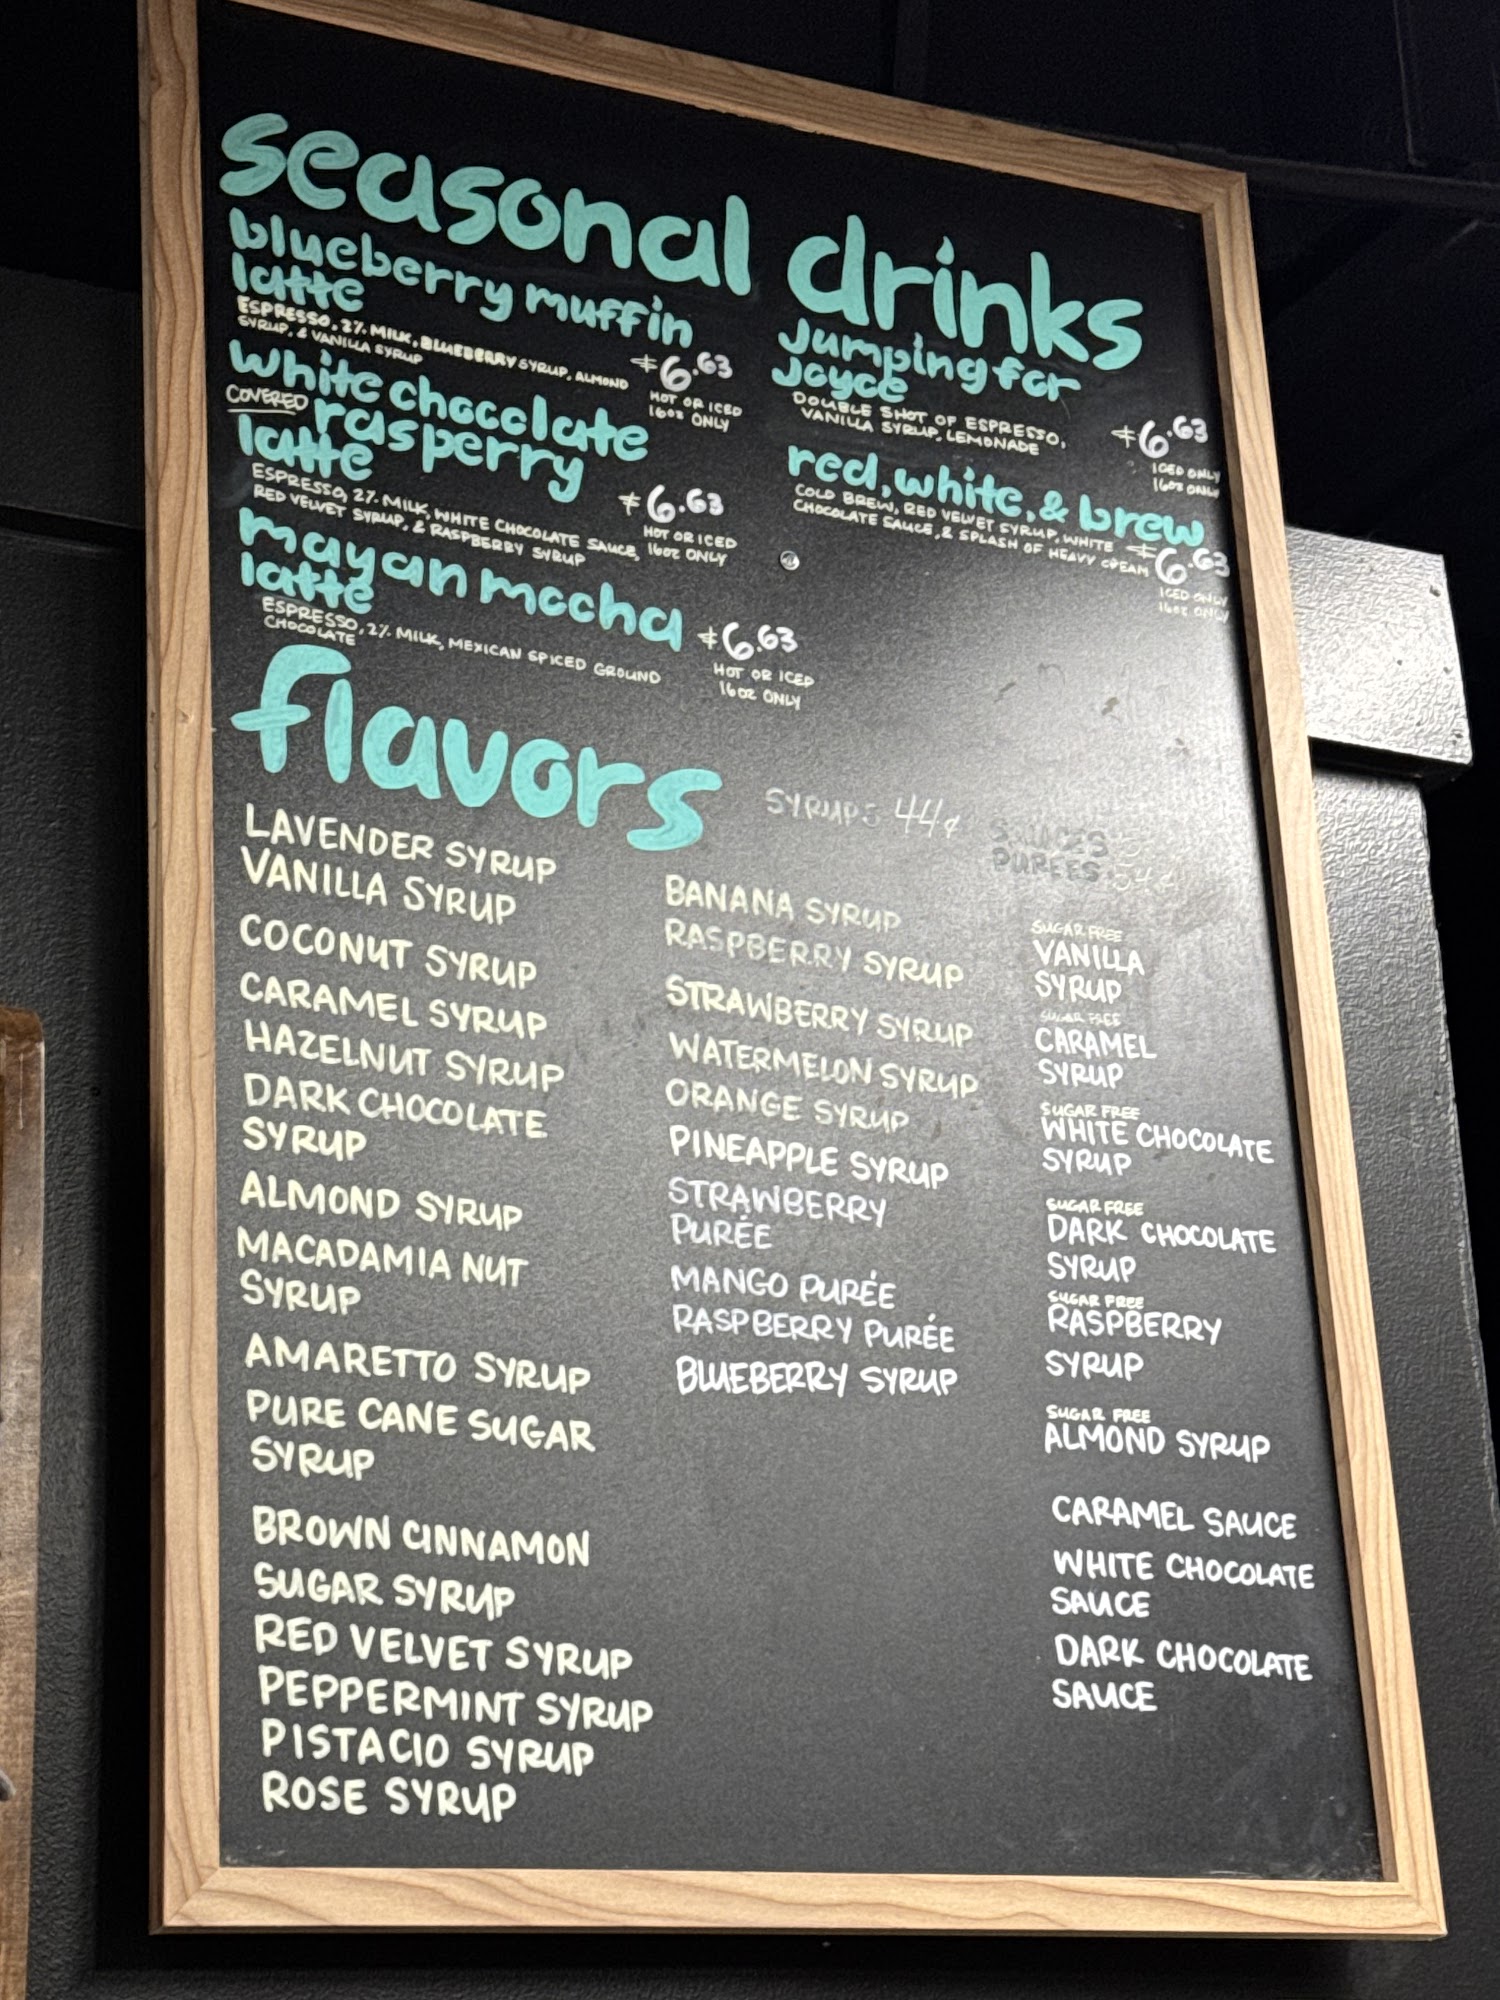 seasonal drinks
blueberry muffin
latte
ESPRESSO, 2% MILK, BLUEBERRY SYRUP, ALMOND
SYRUP, & VANILLA SYRUP
$6.63
HOT OR ICED
16OZ ONLY
white chocolate
COVERED rasperry
latte
ESPRESSO, 2% MILK, WHITE CHOCOLATE SAUCE,
RED VELVET SYRUP, & RASPBERRY SYRUP
$6.63
HOT OR ICED
16OZ ONLY
mayan mocha
latte
ESPRESSO, 2% MILK, MEXICAN SPICED GROUND
CHOCOLATE
$6.63
HOT OR ICED
16OZ ONLY
Jumping for
Joyce
DOUBLE SHOT OF ESPRESSO,
VANILLA SYRUP, LEMONADE
$6.63
ICED ONLY
16OZ ONLY
red, white, & brew
COLD BREW, RED VELVET SYRUP, WHITE
CHOCOLATE SAUCE, & SPLASH OF HEAVY CREAM
$6.63
ICED ONLY
16OZ ONLY
flavors
SYRUPS 44¢
SAUCES
PURÉES
LAVENDER SYRUP
VANILLA SYRUP
COCONUT SYRUP
CARAMEL SYRUP
HAZELNUT SYRUP
DARK CHOCOLATE
SYRUP
ALMOND SYRUP
MACADAMIA NUT
SYRUP
AMARETTO SYRUP
PURE CANE SUGAR
SYRUP
BROWN CINNAMON
SUGAR SYRUP
RED VELVET SYRUP
PEPPERMINT SYRUP
PISTACIO SYRUP
ROSE SYRUP
BANANA SYRUP
RASPBERRY SYRUP
STRAWBERRY SYRUP
WATERMELON SYRUP
ORANGE SYRUP
PINEAPPLE SYRUP
STRAWBERRY
PURÉE
MANGO PURÉE
RASPBERRY PURÉE
BLUEBERRY SYRUP
SUGAR FREE
VANILLA
SYRUP
SUGAR FREE
CARAMEL
SYRUP
SUGAR FREE
WHITE CHOCOLATE
SYRUP
SUGAR FREE
DARK CHOCOLATE
SYRUP
SUGAR FREE
RASPBERRY
SYRUP
SUGAR FREE
ALMOND SYRUP
CARAMEL SAUCE
WHITE CHOCOLATE
SAUCE
DARK CHOCOLATE
SAUCE